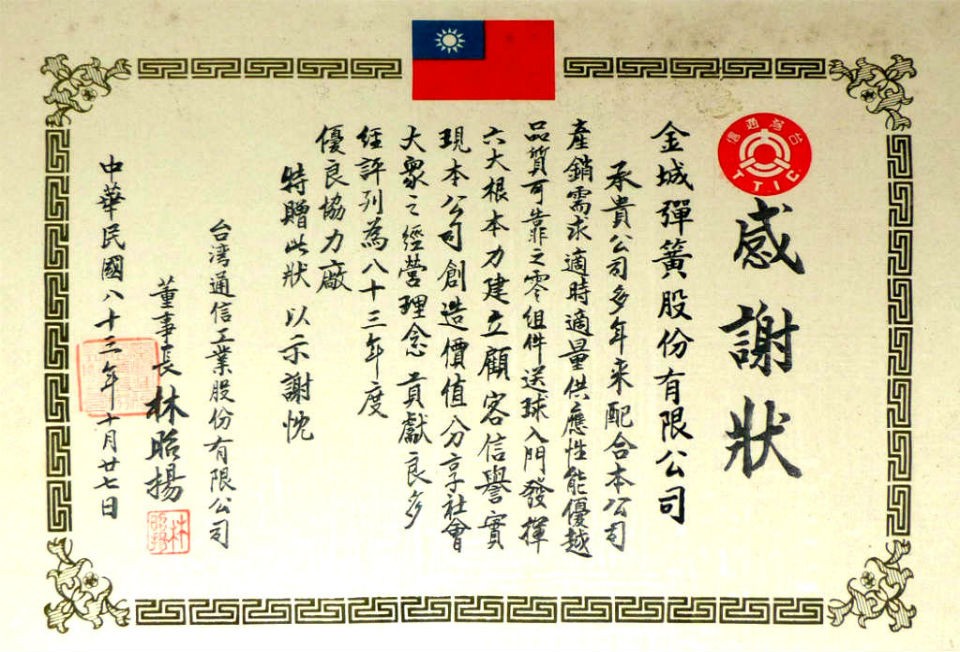 感謝狀
台灣通信
TTIC
金城彈簧股份有限公司
承貴公司多年來配合本公司
產銷需求適時適量供應性能優越
品質可靠之零組件送球入門發揮
六大根本力建立顧客信譽實
現本公司創造價值分享社會
大眾之經營理念貢獻良多
經評列為八十三年度
優良協力廠
特贈此狀以示謝忱
台湾通信工業股份有限公司
董事長林昭揚
中華民國八十三年十月廿七日